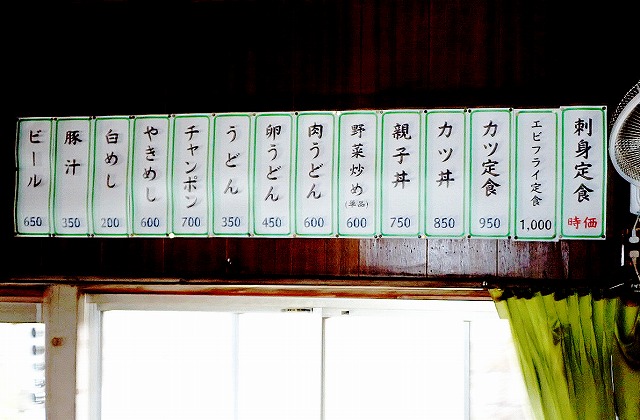 刺身定食
時価
エビフライ定食
1,000
カツ定食
950
カツ丼
850
親子丼
750
野菜炒め
(単品)
600
肉うどん
600
卵うどん
450
うどん
350
チャンポン
700
やきめし
600
白めし
200
豚汁
350
ビール
650